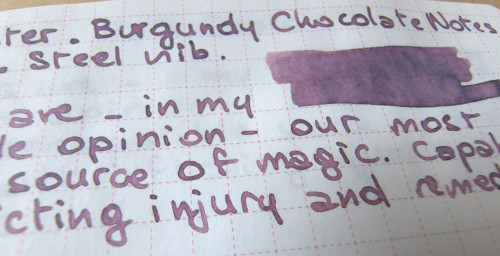 ster. Burgundy Chocolate Notes
. Steel nib.
are - in my
le opinion - our most
source of magic. Capab
icting injury and remed